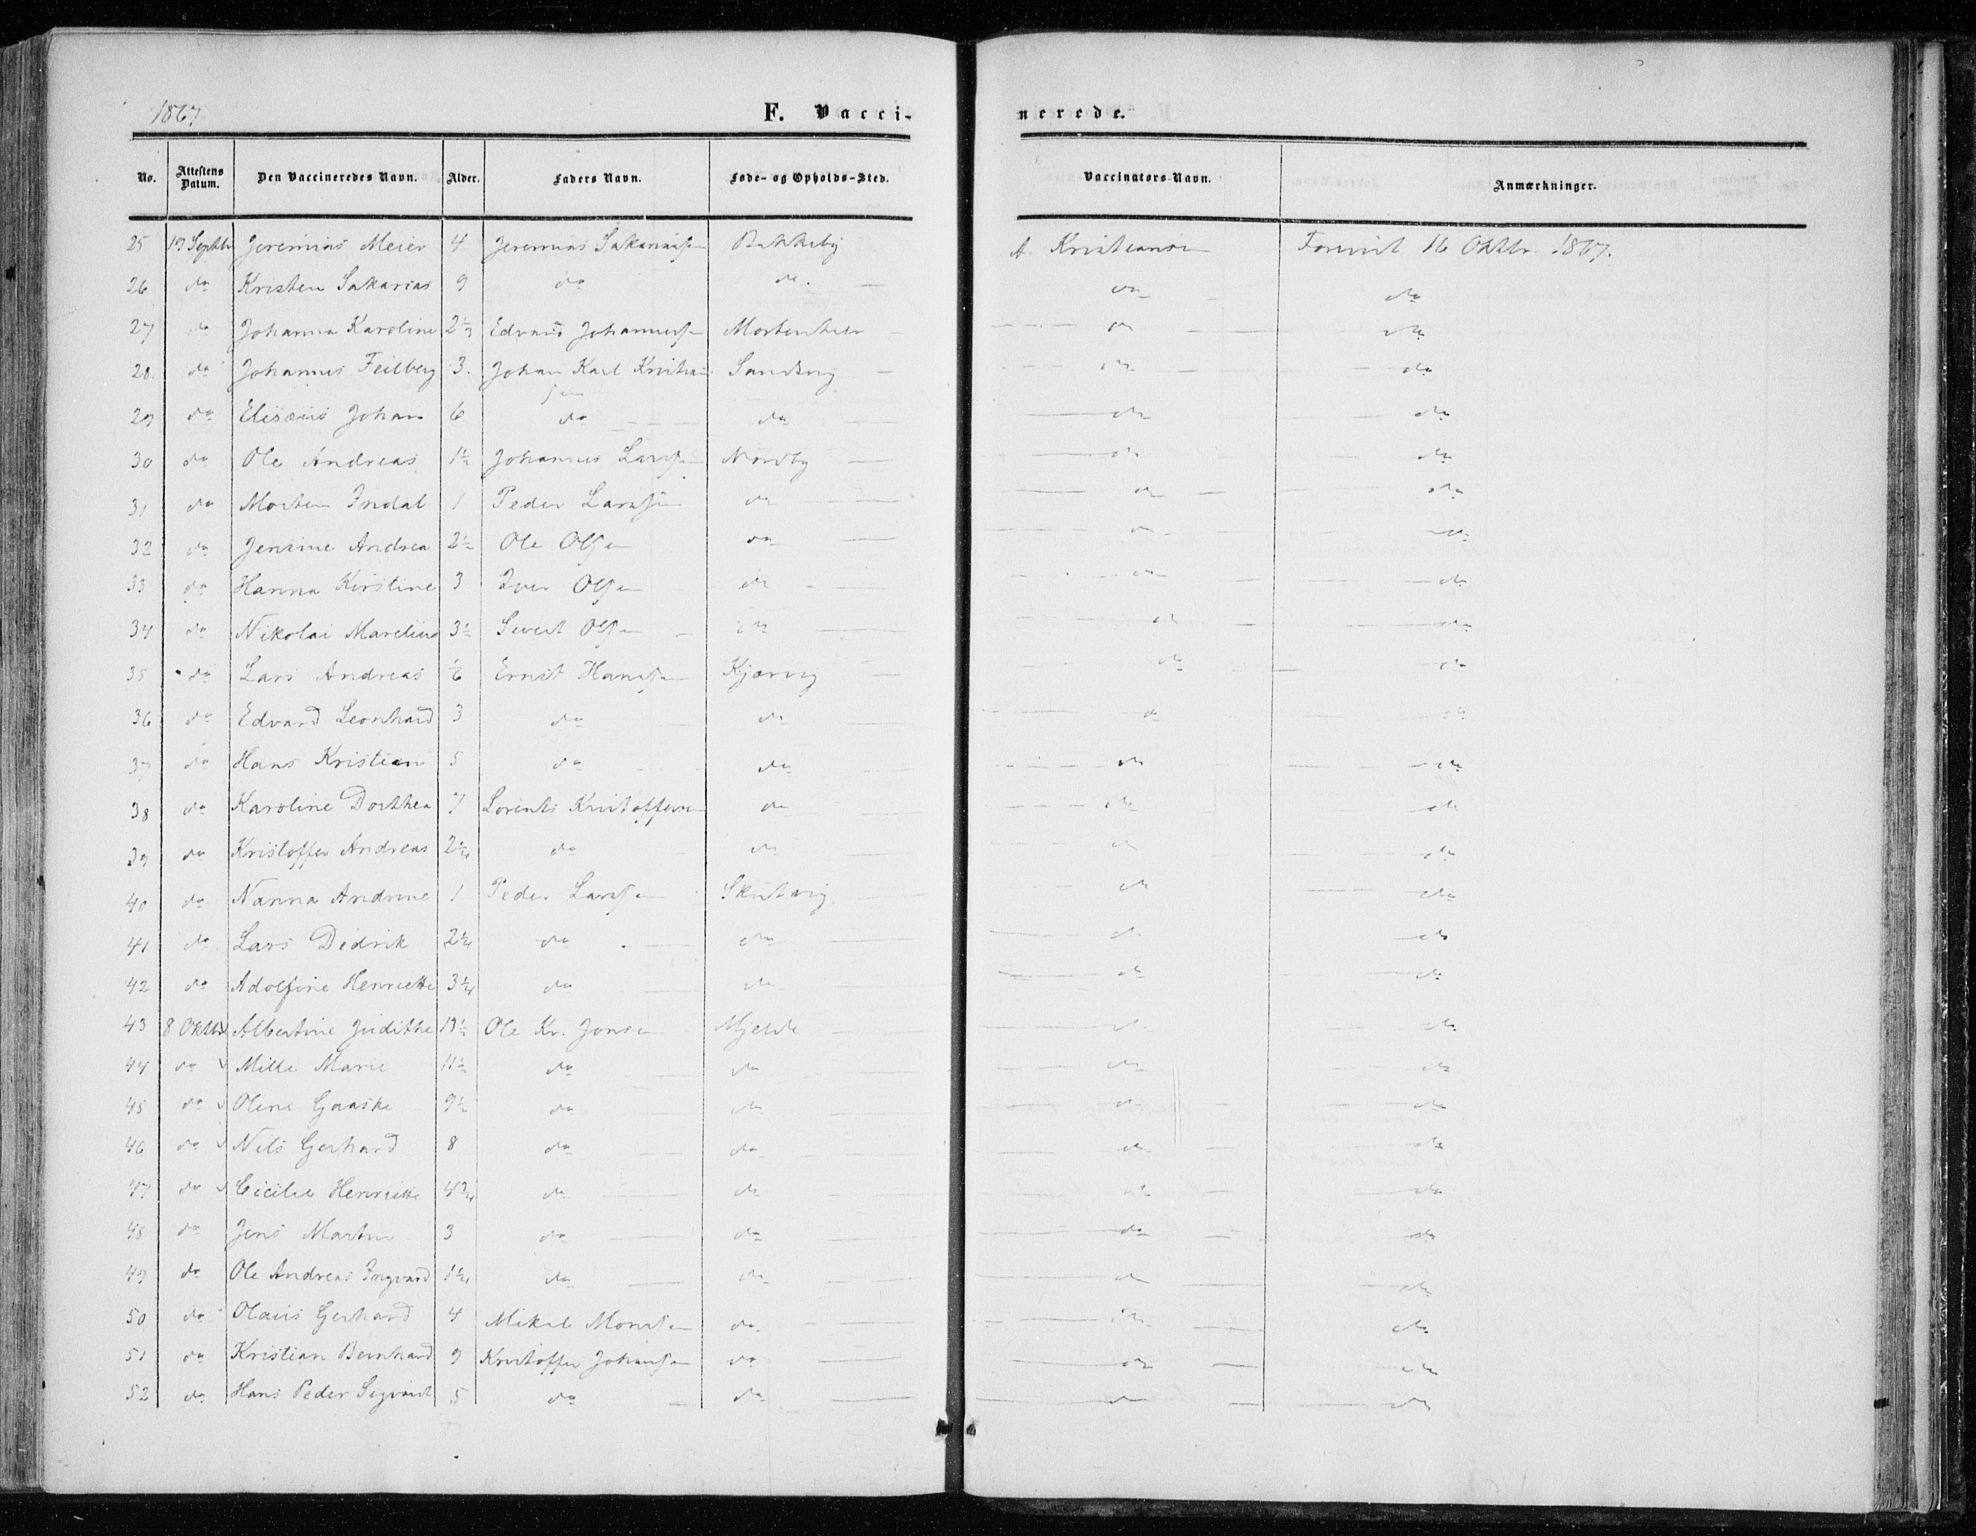 1867. F. Vacci-nerede.
No. Attestens Datum. Den Vaccineredes Navn. Alder. Faders Navn. Føde- og Opholds-Sted. Vaccinators Navn. Anmærkninger.
25 19 Septbr Jeremias Meier 4 Jeremias Sakariassen Bakkeby A. Kristiansen Forevist 16 Oktbr. 1867.
26 do Kristen Sakarias 9 do do. do do
27 do Johanna Karoline 2 1/2 Edvard Johannessen Mortenhals do do
28. do Johannes Feilberg 3. Johan Karl Kristian Sandvig do do
sen
29 do Elisæus Johan 6 do do do do
30 do Ole Andreas 1 1/2 Johannes Larssen Nordby do do
31 do Morten Indal 1 Peder Larssen do do do
32 do Jensine Andrea 2 1/2 Ole Olsen do do do
33 do Hanna Kirstine 3 Iver Olsen do do do
34 do Nikolai Marelius 3 1/2 Sivert Olsen do do do
35 do Lars Andreas 1/2 Ernst Hanssen Kjærvig do do
36 do Edvard Leonhard 3 do do do do
37 do Hans Kristian 5 do do do do
38 do Karoline Dorthea 7 Lorents Kristoffersen do do do
39 do Kristoffer Andreas 2 1/4 do do do do
40 do Nanna Andrine 1 Peder Larssen Skutvig do do
41 do Lars Didrik 2 1/4 do do do do
42 do Adolfine Henriette 3 1/4 do do do do
43 8 Oktbr Albertine Judithe 13 1/2 Ole Kr. Jonsen Mjelde do do
44 do Mille Marie 11 1/2 do do do do
45 do Olene Gaaske 9 1/2 do do do do
46 do Nils Gerhard 8 do do do do
47 do Cicilie Henriette 4 3/4 do do do do
48 do Jens Martin 3 do do do do
49 do Ole Andreas Ingvard 1 1/4 do do do do
50 do Olaus Gerhard 4 Mikal Monssen do do do
51 do Kristian Bernhard 9 Kristoffer Johansen do do do
52 do Hans Peder Sigvart 5 do do do do